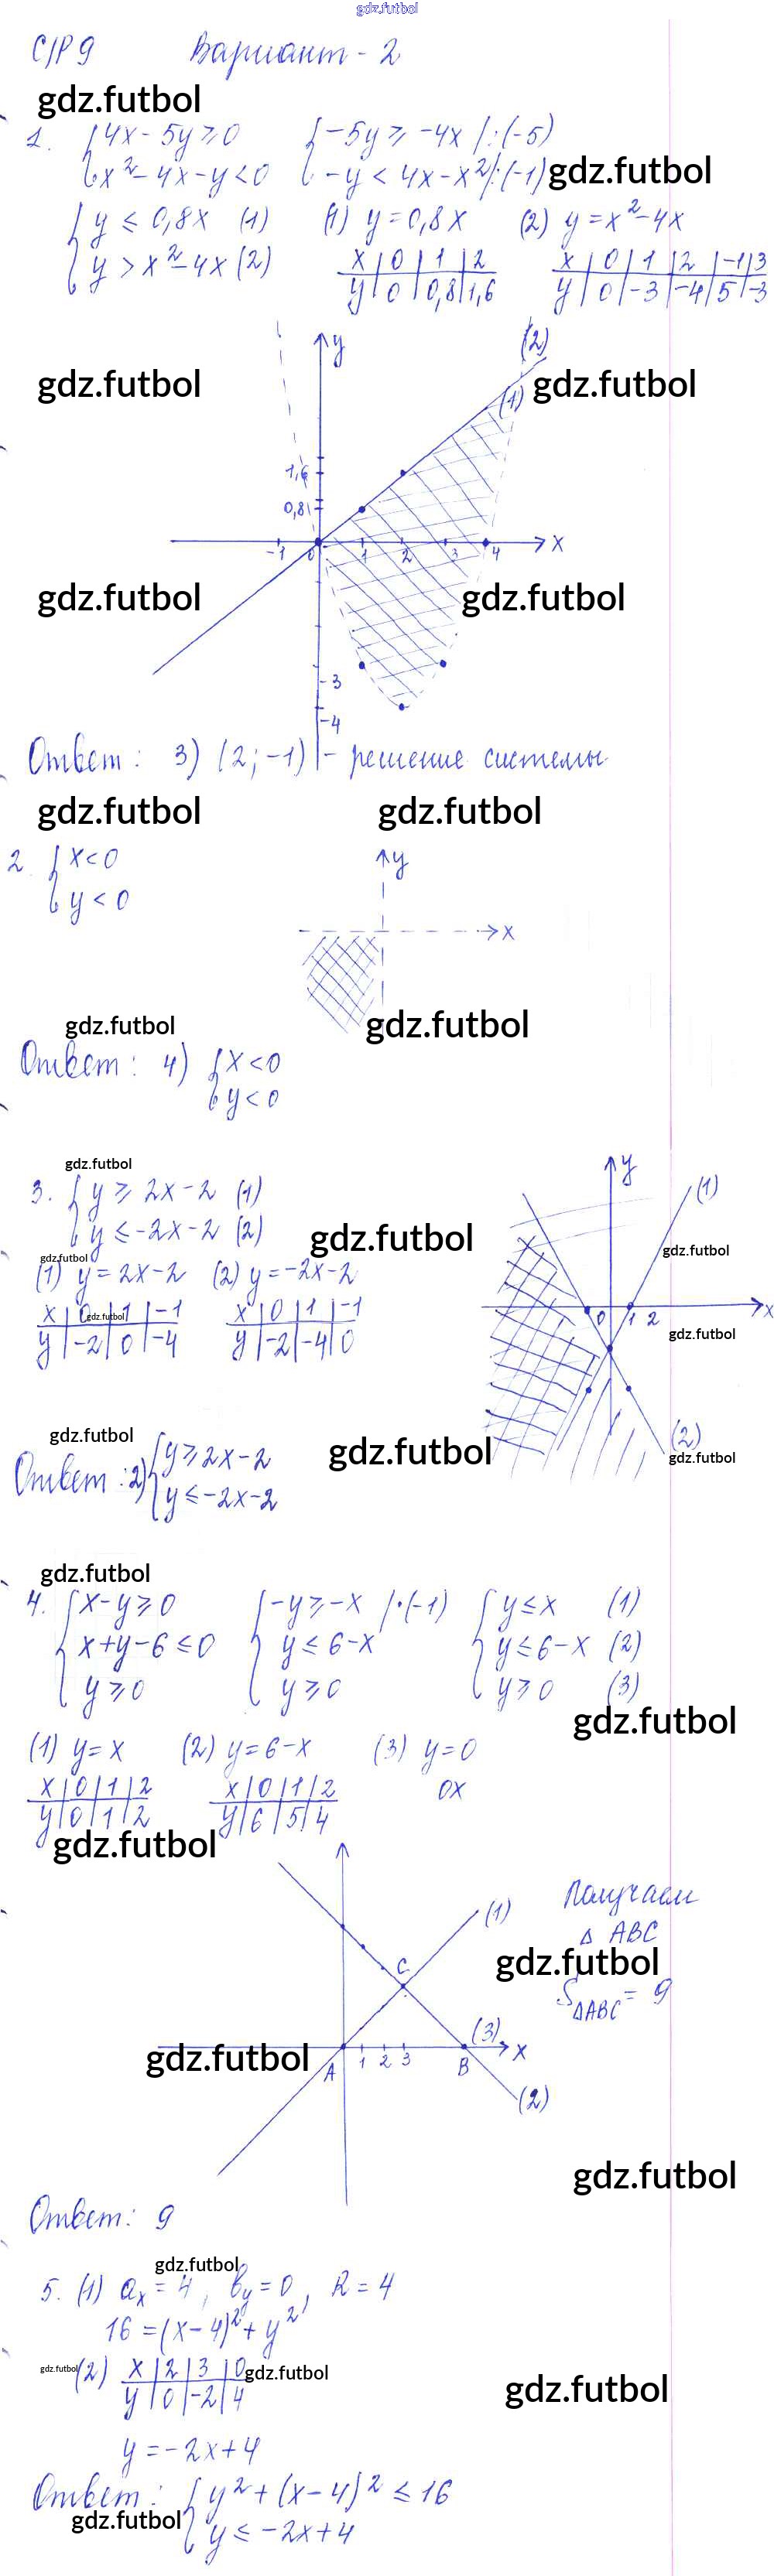 gdz.futbol
С/Р 9 Вариант - 2
gdz.futbol
1. {4x - 5y ≥ 0 {-5y ≥ -4x /:(-5)
x² - 4x - y < 0 -y < 4x - x² /:(-1) gdz.futbol
{y ≤ 0,8x (1) (1) y = 0,8x (2) y = x² - 4x
y > x² - 4x (2) x | 0 | 1 | 2 x | 0 | 1 | 2 | -1 | 3
y | 0 | 0,8 | 1,6 y | 0 | -3 | -4 | 5 | -3
y (2)
gdz.futbol (1) gdz.futbol
1,6
0,8
-1 0 1 2 3 4 x
gdz.futbol gdz.futbol
-3
-4
Ответ: 3) (2; -1) - решение системы
gdz.futbol gdz.futbol
2. {x < 0 y
y < 0
x
gdz.futbol gdz.futbol
Ответ: 4) {x < 0
y < 0
gdz.futbol
3. {y ≥ 2x - 2 (1) y (1)
y ≤ -2x - 2 (2) gdz.futbol gdz.futbol
gdz.futbol
(1) y = 2x - 2 (2) y = -2x - 2
x | 0 | 1 | -1 x | 0 | 1 | -1 0 1 2 x
gdz.futbol
y | -2 | 0 | -4 y | -2 | -4 | 0 gdz.futbol
gdz.futbol gdz.futbol (2)
gdz.futbol
Ответ: 2) {y ≥ 2x - 2
y ≤ -2x - 2
gdz.futbol
4. {x - y ≥ 0 {-y ≥ -x /·(-1) {y ≤ x (1)
x + y - 6 ≤ 0 y ≤ 6 - x y ≤ 6 - x (2)
y ≥ 0 y ≥ 0 y ≥ 0 (3)
gdz.futbol
(1) y = x (2) y = 6 - x (3) y = 0
x | 0 | 1 | 2 x | 0 | 1 | 2 OX
y | 0 | 1 | 2 y | 6 | 5 | 4
gdz.futbol
(1) Получаем
Δ ABC
C gdz.futbol
S ΔABC = 9
(3)
gdz.futbol A 1 2 3 B x
(2)
gdz.futbol
Ответ: 9
gdz.futbol
5. (1) aₓ = 4, bᵧ = 0, R = 4
16 = (x - 4)² + y²
gdz.futbol (2) x | 2 | 3 | 0 gdz.futbol
y | 0 | -2 | 4 gdz.futbol
y = -2x + 4
Ответ: {y² + (x - 4)² ≤ 16
gdz.futbol y ≤ -2x + 4